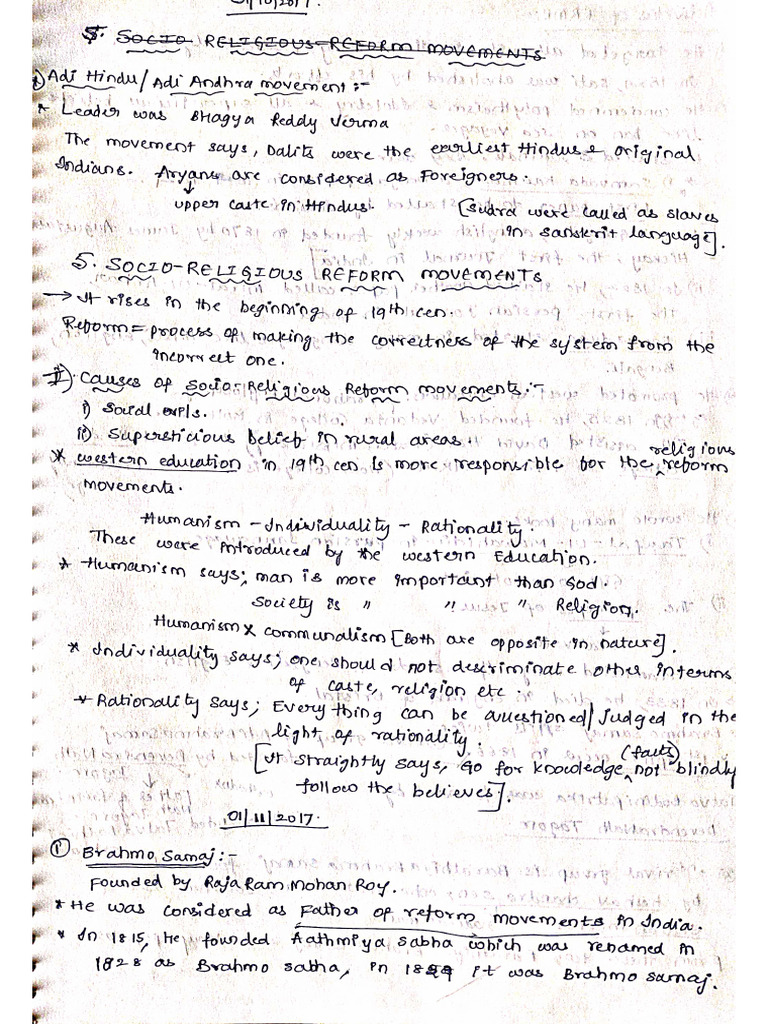 /10/2017.
5. SOCIO RELIGIOUS REFORM MOVEMENTS
Adi Hindu/Adi Andhra movement :-
* Leader was Bhagya Reddy Verma
The movement says, Dalits were the earliest Hindus & original
Indians. Aryans are considered as Foreigners.
↓
upper caste in Hindus. [Sudra were called as slaves
in sanskrit language].
5. SOCIO-RELIGIOUS REFORM MOVEMENTS
→ It rises in the beginning of 19th cen.
Reform = process of making the correctness of the system from the
incorrect one.
II) Causes of Socio-Religious Reform movements :-
i) Social expls.
ii) Supersticious belief in rural areas.
religious
* western education in 19th cen is more responsible for the ^ reform
movements.
Humanism - Individuality - Rationality.
These were introduced by the western Education.
* Humanism says; man is more important than God.
Society is " " " Religion.
Humanism x communalism [Both are opposite in nature].
* Individuality says; one should not descriminate other interms
of caste, religion etc.
* Rationality says; Everything can be questioned/judged in the
light of rationality.
(facts)
[It straightly says, Go for knowledge ^ not blindly
follow the believes].
01/11/2017.
① Brahmo Samaj :-
Founded by Raja Ram Mohan Roy.
* He was considered as Father of reform movements in India.
* In 1815, He founded Aathmiya Sabha which was renamed in
1828 as Brahmo sabha, in it was Brahmo samaj.